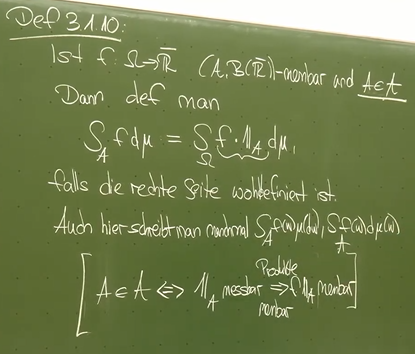 Def 3.1.10:
Ist f: Ω→ℝ̅ (𝒜, B(ℝ̅))-messbar und A∈𝒜
Dann def man
∫_A f dμ = ∫_Ω f·𝟙_A dμ,
falls die rechte Seite wohldefiniert ist.
Auch hier schreibt man manchmal ∫_A f(ω)μ(dω), ∫_A f(ω)dμ(ω)
[A∈𝒜 ⇔ 𝟙_A messbar ⇒ f𝟙_A messbar]
Produkte
messbar